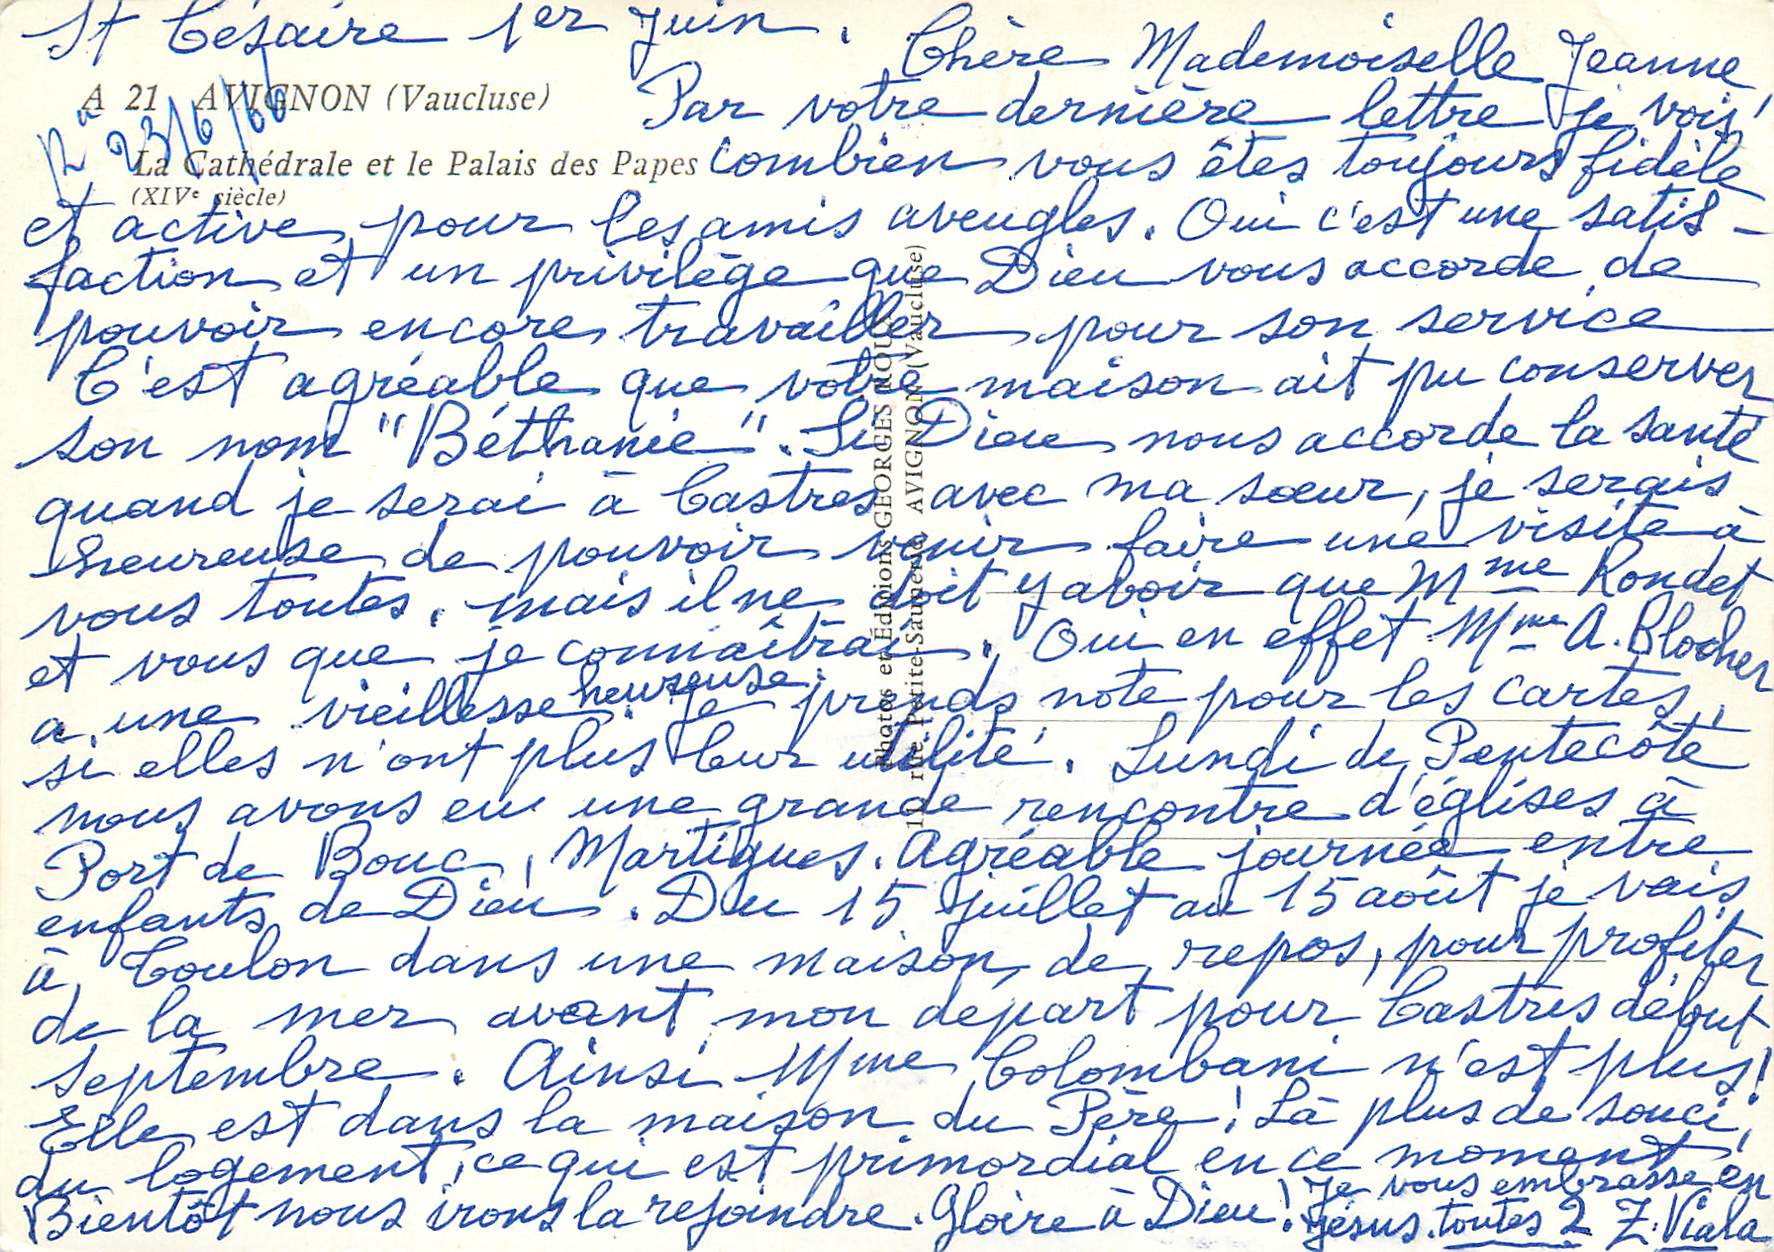 St Césaire 1er Juin.
Chère Mademoiselle Jeanne
A 21 AVIGNON (Vaucluse)
Ru 23/6/66
Par votre dernière lettre je vois
La Cathédrale et le Palais des Papes
(XIVe siècle)
combien vous êtes toujours fidèle
et active pour les amis aveugles. Oui c'est une satis-
faction et un privilège que Dieu vous accorde de
pouvoir encore travailler pour son service
C'est agréable que votre maison ait pu conserver
son nom "Béthanie". Si Dieu nous accorde la santé
quand je serai à Castres avec ma sœur, je serais
heureuse de pouvoir venir faire une visite à
vous toutes, mais il ne doit y avoir que Mme Rondet
et vous que je connaîtrai. Oui en effet Mme A. Blocher
a une vieillesse heureuse. Je prends note pour les cartes,
si elles n'ont plus leur utilité. Lundi de Pentecôte
nous avons eu une grande rencontre d'églises à
Port de Bouc, Martigues. Agréable journée entre
enfants de Dieu. Du 15 juillet au 15 août je vais
à Toulon dans une maison de repos, pour profiter
de la mer avant mon départ pour Castres début
septembre. Ainsi Mme Colombani n'est plus!
Elle est dans la maison du Père! Là plus de souci
du logement, ce qui est primordial en ce moment
Bientôt nous irons la rejoindre. Gloire à Dieu! Je vous embrasse en
Jésus. toutes 2 Z. Viala
Photos et Editions GEORGES ROUX
11, rue Petite-Saunerie, AVIGNON (Vaucluse)